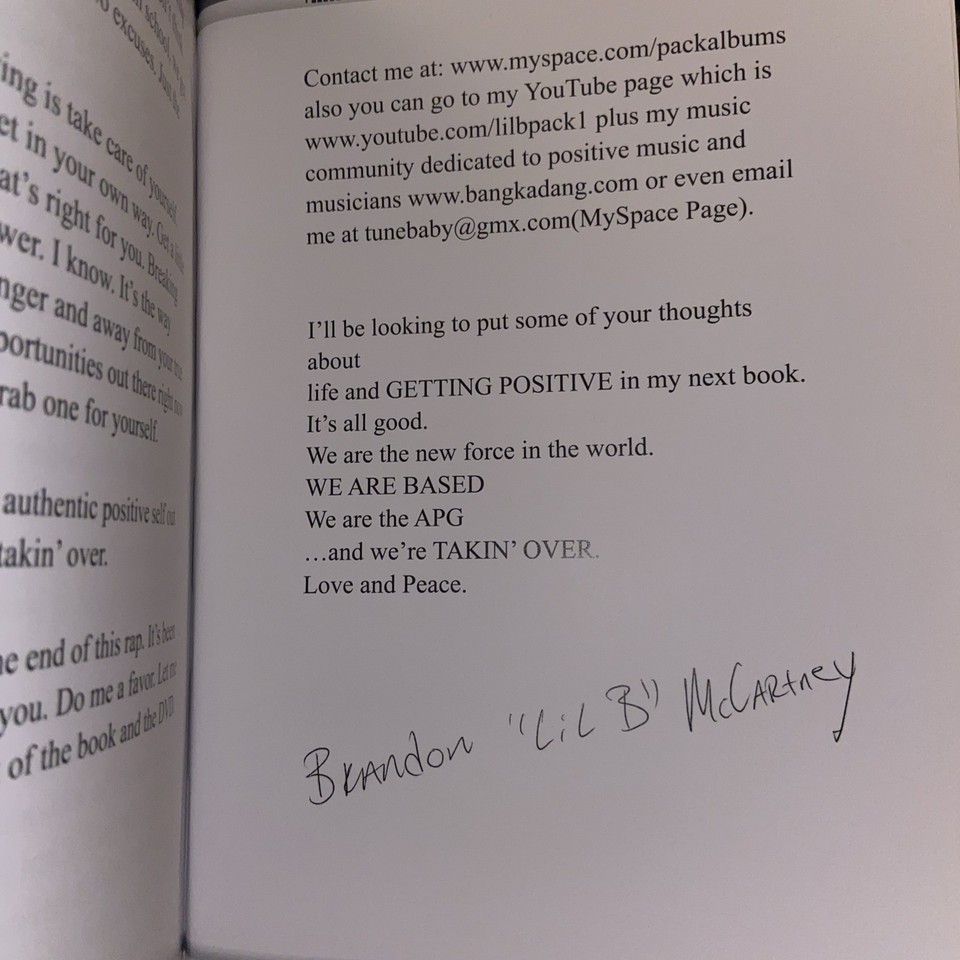 school,
o excuses. Just
ing is take care of yourself
et in your own way. Get a
at's right for you. Breaking
wer. I know. It's the way
nger and away from your
portunities out there right
rab one for yourself.
authentic positive self out
takin' over.
he end of this rap. It's been
you. Do me a favor. Let me
of the book and the DVD
Contact me at: www.myspace.com/packalbums
also you can go to my YouTube page which is
www.youtube.com/lilbpack1 plus my music
community dedicated to positive music and
musicians www.bangkadang.com or even email
me at tunebaby@gmx.com(MySpace Page).
I'll be looking to put some of your thoughts
about
life and GETTING POSITIVE in my next book.
It's all good.
We are the new force in the world.
WE ARE BASED
We are the APG
…and we're TAKIN' OVER.
Love and Peace.
Brandon "Lil B" McCartney